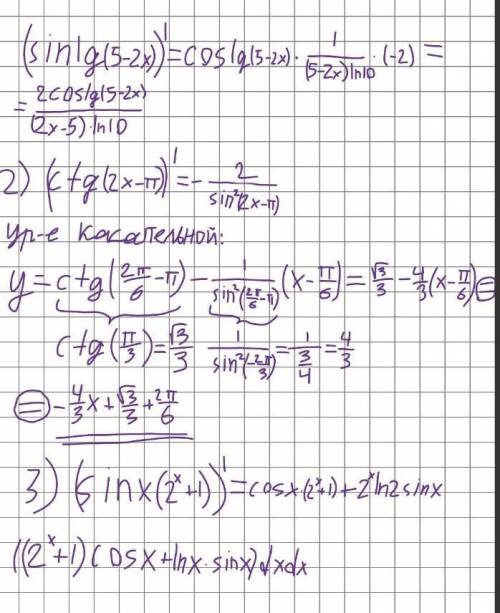 (sin lg(5-2x))' = cos lg(5-2x) · 1/((5-2x)ln10) · (-2) =
= 2cos lg(5-2x)/((2x-5)·ln10)
2) (ctg(2x-π))' = - 2/sin²(2x-π)
Ур-е касательной:
y = ctg(2π/6 - π) - 1/sin²(2π/6 - π) (x - π/6) = √3/3 - 4/3(x - π/6) =
ctg(π/3) = √3/3   1/sin²(-2π/3) = 1/(3/4) = 4/3
= -4/3x + √3/3 + 2π/6
3) (sinx(2^x+1))' = cosx·(2^x+1) + 2^x ln2 sinx
((2^x+1)cosx + lnx·sinx)dxdx